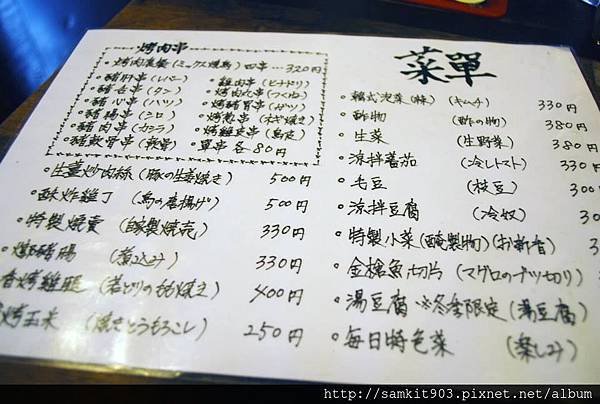 烤肉串
菜單
烤肉套餐 (ミックス焼鳥) 四串…320円
豬肝串 (レバー)
豬舌串 (タン)
豬心串 (ハツ)
豬腸串 (シロ)
豬肉串 (カシラ)
豬軟骨串 (軟骨)
雞肉串 (ヒナドリ)
烤肉丸串 (つくね)
烤豬胃串 (ガツ)
烤蔥串 (ねぎ焼き)
單串各80円
生薑炒肉絲 (豚の生姜焼き) 500円
酥炸雞丁 (鳥の唐揚げ) 500円
特製燒賣 (自家製焼売) 330円
豬腸 (煮込み) 330円
香烤雞腿 (若どりのもも焼き) 400円
烤玉米 (焼きとうもろこし) 250円
韓式泡菜(辣) (キムチ) 330円
酢物 (酢の物) 380円
生菜 (生野菜) 380円
涼拌蕃茄 (冷しトマト) 330
毛豆 (枝豆) 300
涼拌豆腐 (冷奴) 300
特製小菜(醃製物) (お新香) 3
金槍魚切片 (マグロのブツ切り)
湯豆腐 ※冬季限定 (湯豆腐)
每日特色菜 (楽しみ)
http://samkit903.pixnet.net/album